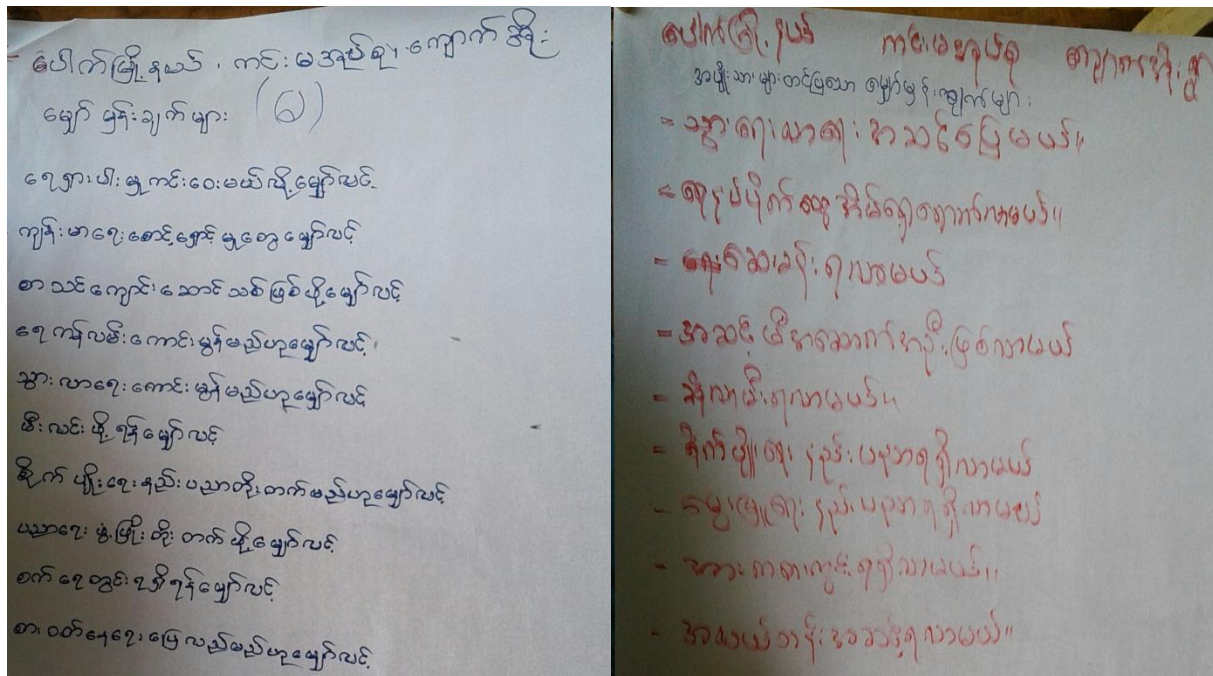 ပေါက်မြို့နယ်၊ ကင်းမအုပ်စု၊ ကျောက်အိုး
မျှော်မှန်းချက်များ (၆)
ရေရှားပါးမှုကင်းဝေးမယ်လို့မျှော်လင့်
ကျန်းမာရေးစောင့်ရှောင့်မှုတွေမျှော်လင့်
စာသင်ကျောင်းဆောင်သစ်ဖြစ်ဖို့မျှော်လင့်
ရေကန်လမ်းကောင်းမွန်မည်ဟုမျှော်လင့်
သွားလာရေးကောင်းမွန်မည်ဟုမျှော်လင့်
မီးလင်းဖို့ရန်မျှော်လင့်
စိုက်ပျိုးရေးနည်းပညာတိုးတက်မည်ဟုမျှော်လင့်
ပညာရေးဖွံ့ဖြိုးတိုးတက်ဖို့မျှော်လင့်
စက်ရေတွင်းရရှိရန်မျှော်လင့်
စားဝတ်နေရေးပြေလည်မည်ဟုမျှော်လင့်
ပေါက်မြို့နယ် ကင်းမအုပ်စု
အမျိုးသားများတင်ပြသော မျှော်မှန်းချက်များ
= သွားရေးလာရေး အဆင်ပြေမယ်။
= ရေပိုက် အိမ်ရောက်လာမယ်။
- ဆေးခန်းရလာမယ်
= အဆင့်မီစာဆောက်အဦးဖြစ်လာမယ်
- မီးရလာမယ်။
- စိုက်ပျိုးရေးနည်းပညာရရှိလာမယ်
- မွေးမြူရေးနည်းပညာရရှိလာမယ်
- အားကစားကွင်းရရှိလာမယ်။
- အလယ်တန်းအဆင့်ရလာမယ်။